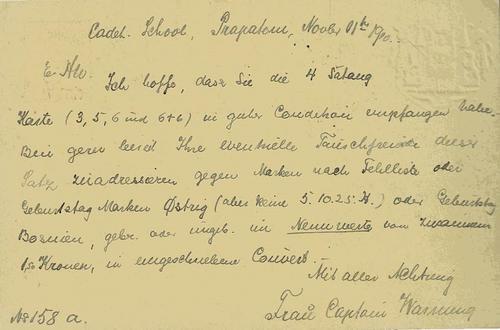 Cadet School, Prapatom, Novbr 01 1910.
E. Hw.
Ich hoffe, dass Sie die 4 Satang
Karte (3, 5, 6 und 6+6) in guter Condition empfangen
Bin gern bereit Ihre eventuelle Tauschfreunde dieser
Satz gegen Marken nach Fehlliste oder
Geburtstag Marken (aber keine 5. 10. 25. H.) oder Geburtstag
Bosnien, gebr. oder ungeb. im Nennwerte von
Kronen, in eingeschriebene Couvert.
Mit aller Achtung
Frau Captain Warming
No 158 a.